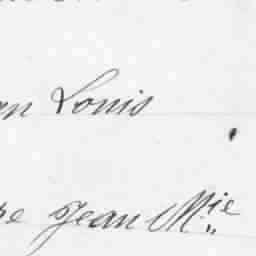 Louis
Jean Mie